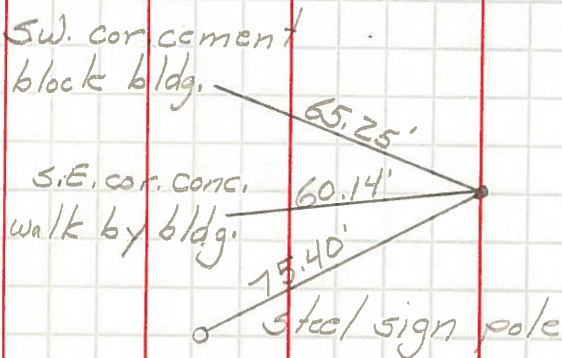 SW. cor. cement
block bldg.
65.25'
S.E. cor. conc.
walk by bldg.
60.14'
75.40'
Steel sign pole